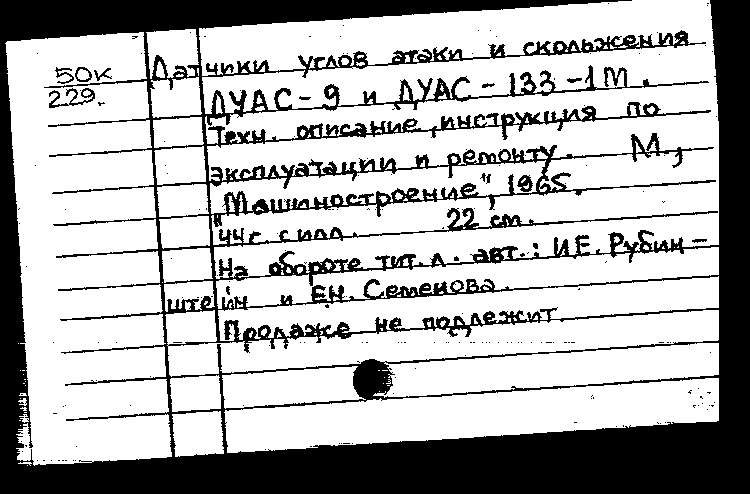 50к
229.
Датчики углов атаки и скольжения
ДУАС-9 и ДУАС-133-1М.
Техн. описание, инструкция по
эксплуатации и ремонту. М.,
"Машиностроение", 1965.
44 с. с илл. 22 см.
На обороте тит. л. авт.: И.Е. Рубин-
штейн и Е.Н. Семенова.
Продаже не подлежит.